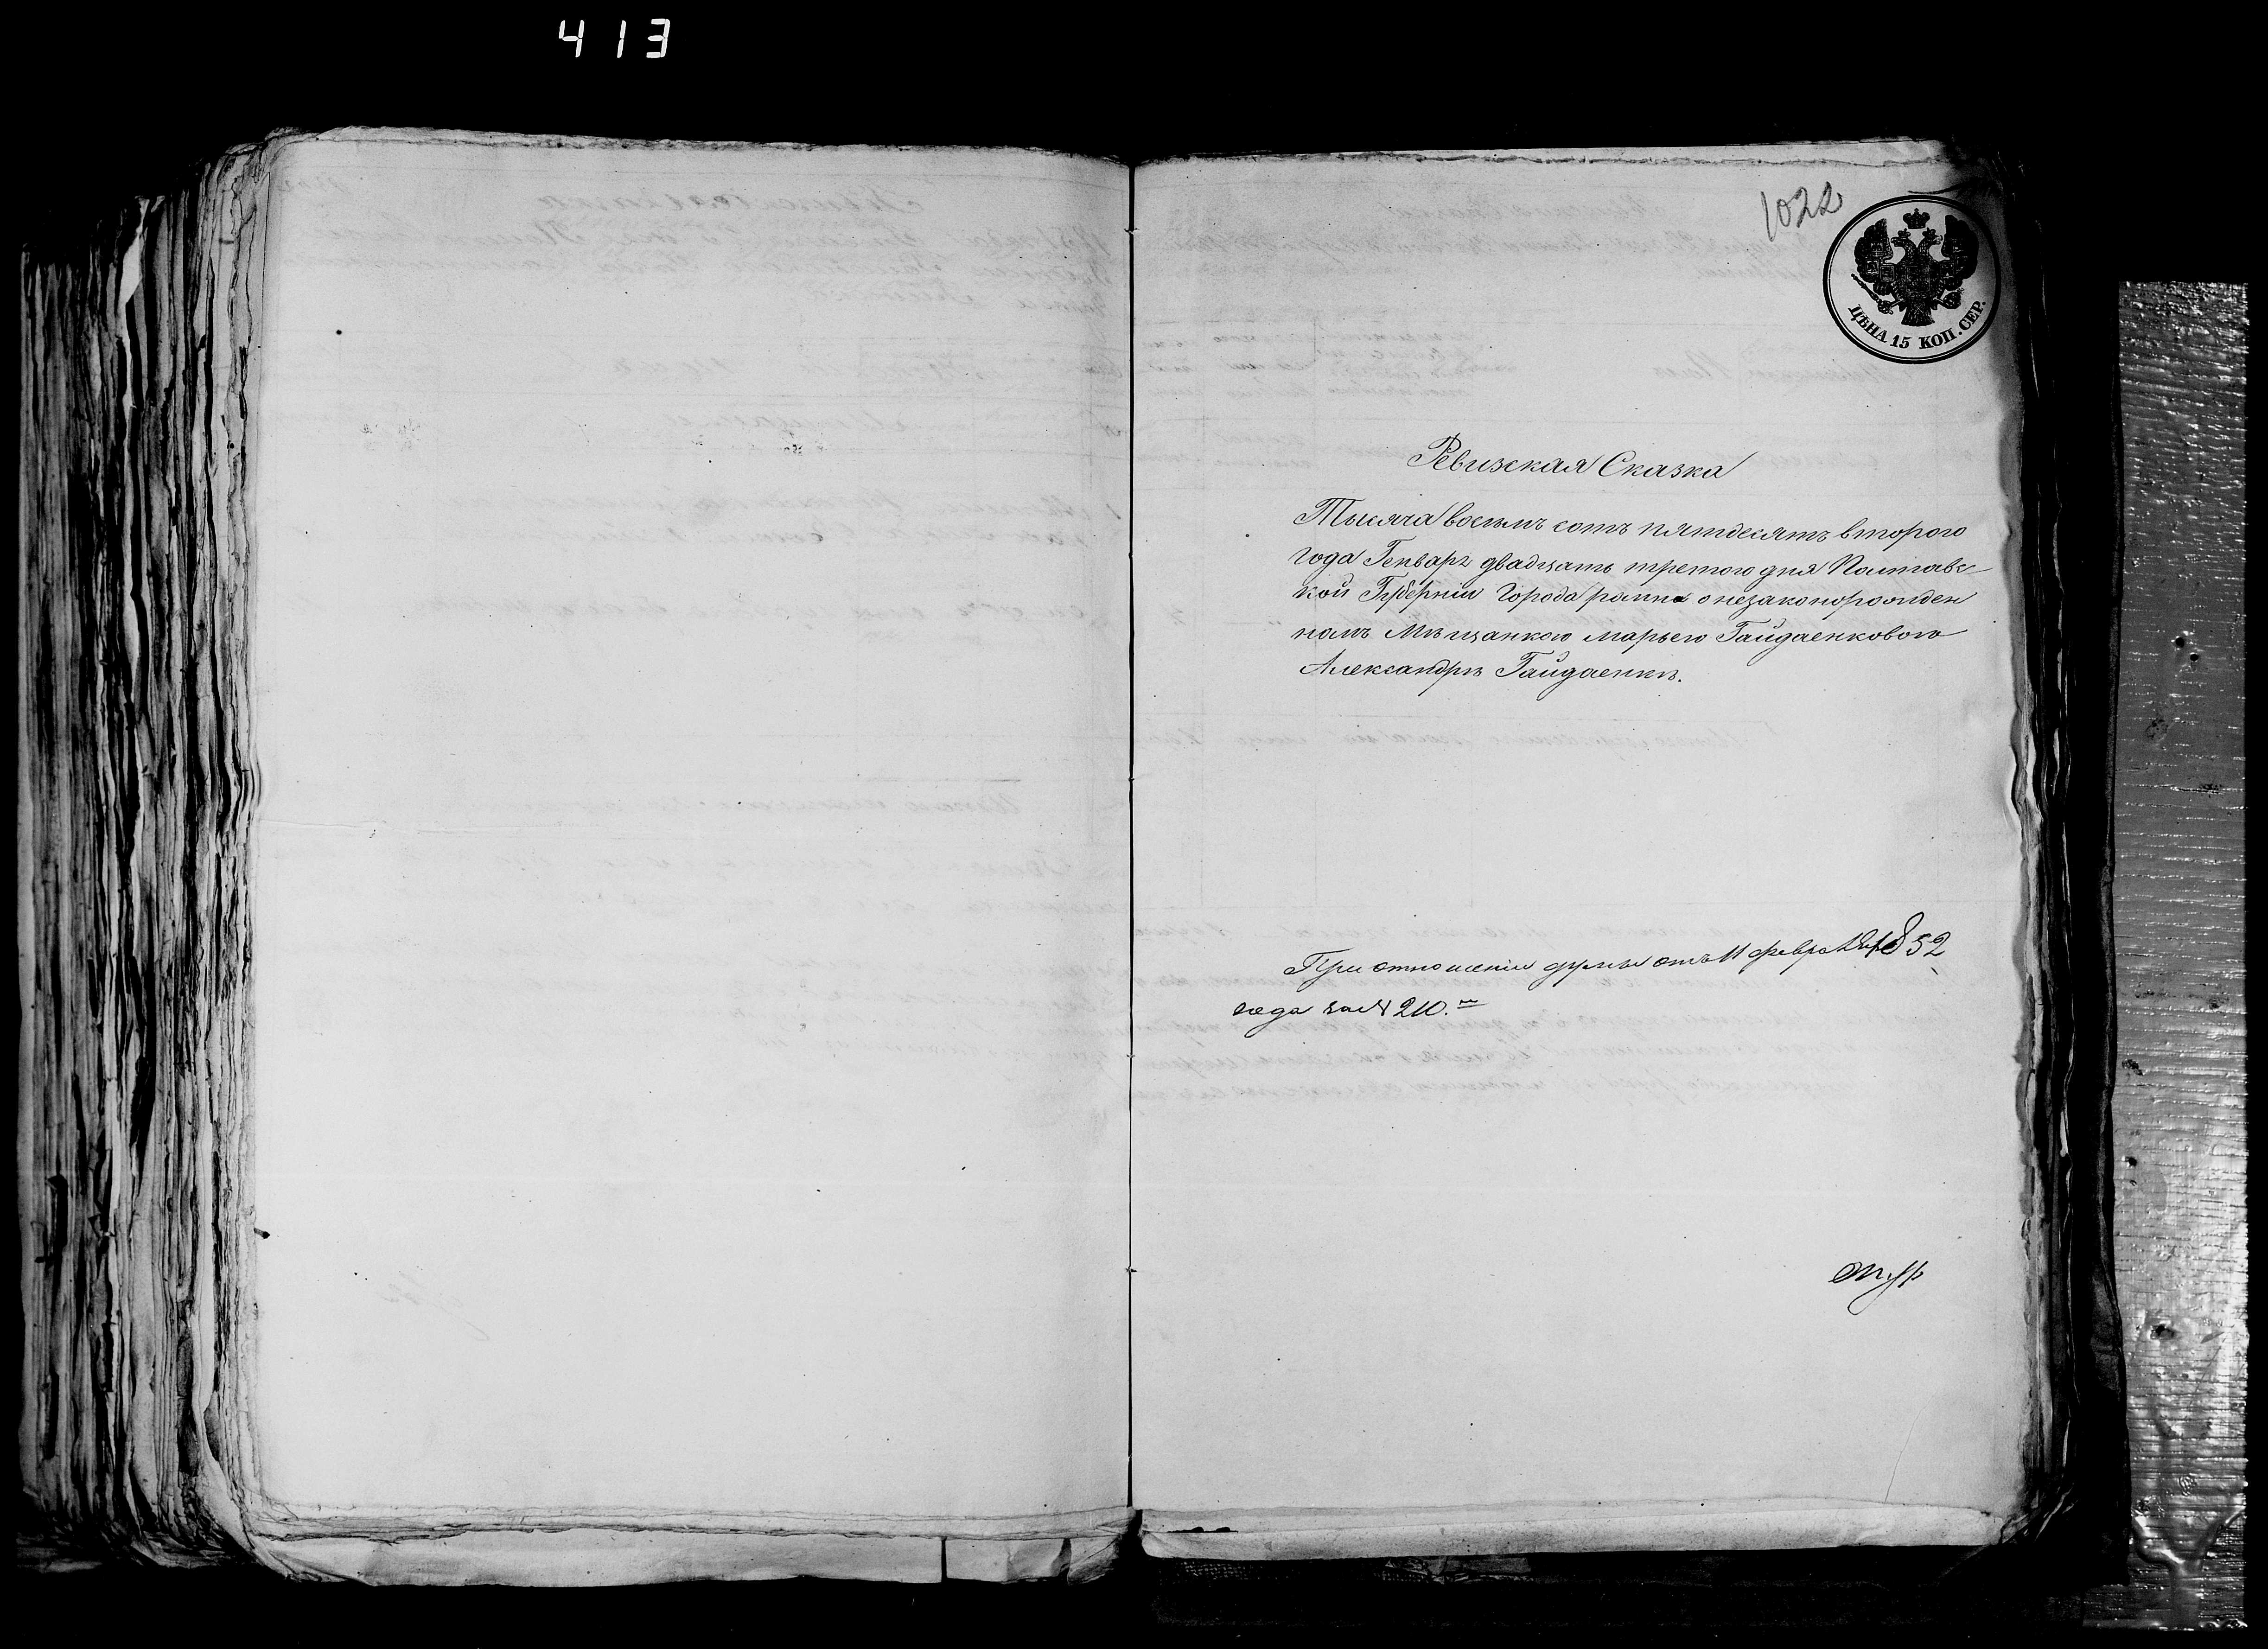 413
1022
ЦѢНА 15 КОП. СЕР.
Ревизская Сказка
Тысяча восемь сотъ пятдесятъ второго
года Генваря двадцать третого дня Полтавс
кой Губерніи Города ромна о незаконорожден
номъ Мѣщанкою Марьею Гайдаенковою
Александрѣ Гайдаенкѣ.
При отношеніи думы отъ 11 февраля 1852
года за № 210.